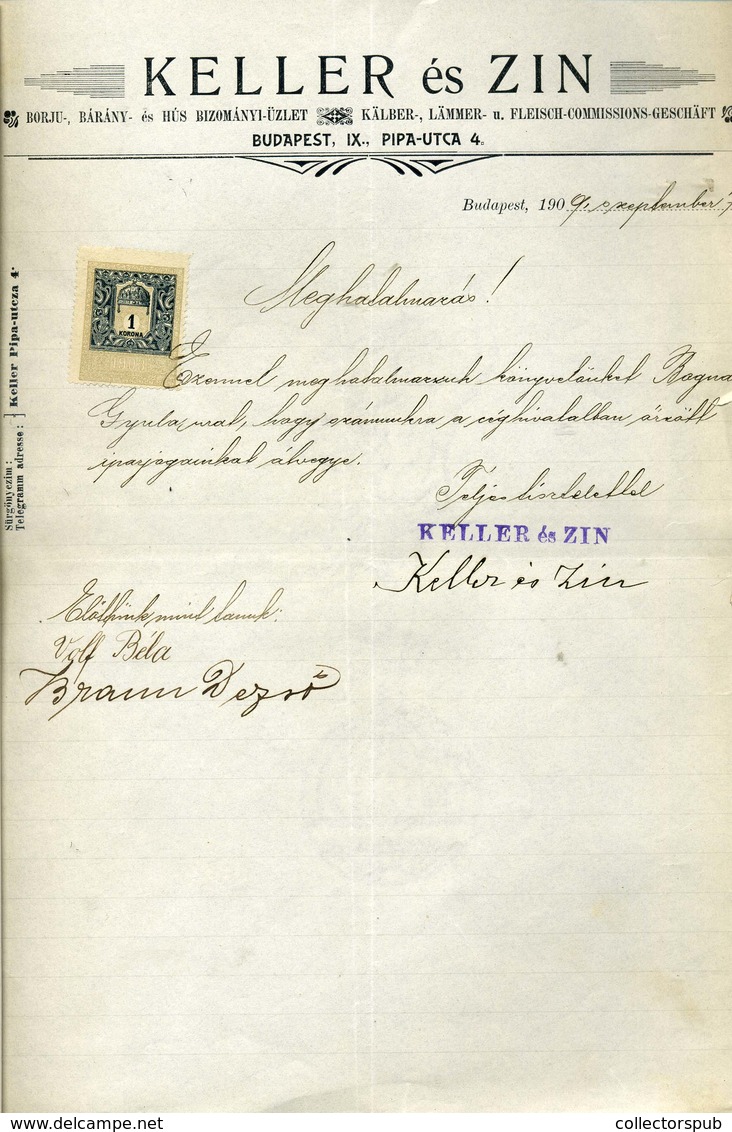 KELLER és ZIN
BORJU-, BÁRÁNY- és HÚS BIZOMÁNYI-ÜZLET KÄLBER-, LÄMMER- u. FLEISCH-COMMISSIONS-GESCHÄFT
BUDAPEST, IX., PIPA-UTCA 4.
Budapest, 1909, szeptember
Sürgönyezim :
Telegramm adresse : } Keller Pipa-utcza 4.
1
KORONA
Meghatalmazás!
Ezennel meghatalmazzuk könyvelőnket Bogna
Gyula urat, hogy számunkra a céghivatalban őrzött
iparjogainkat átvegye.
Teljes tisztelettel
KELLER és ZIN
Keller és Zin
Előttünk mint tanuk:
Volf Béla
Braun Dezső
collectorspub